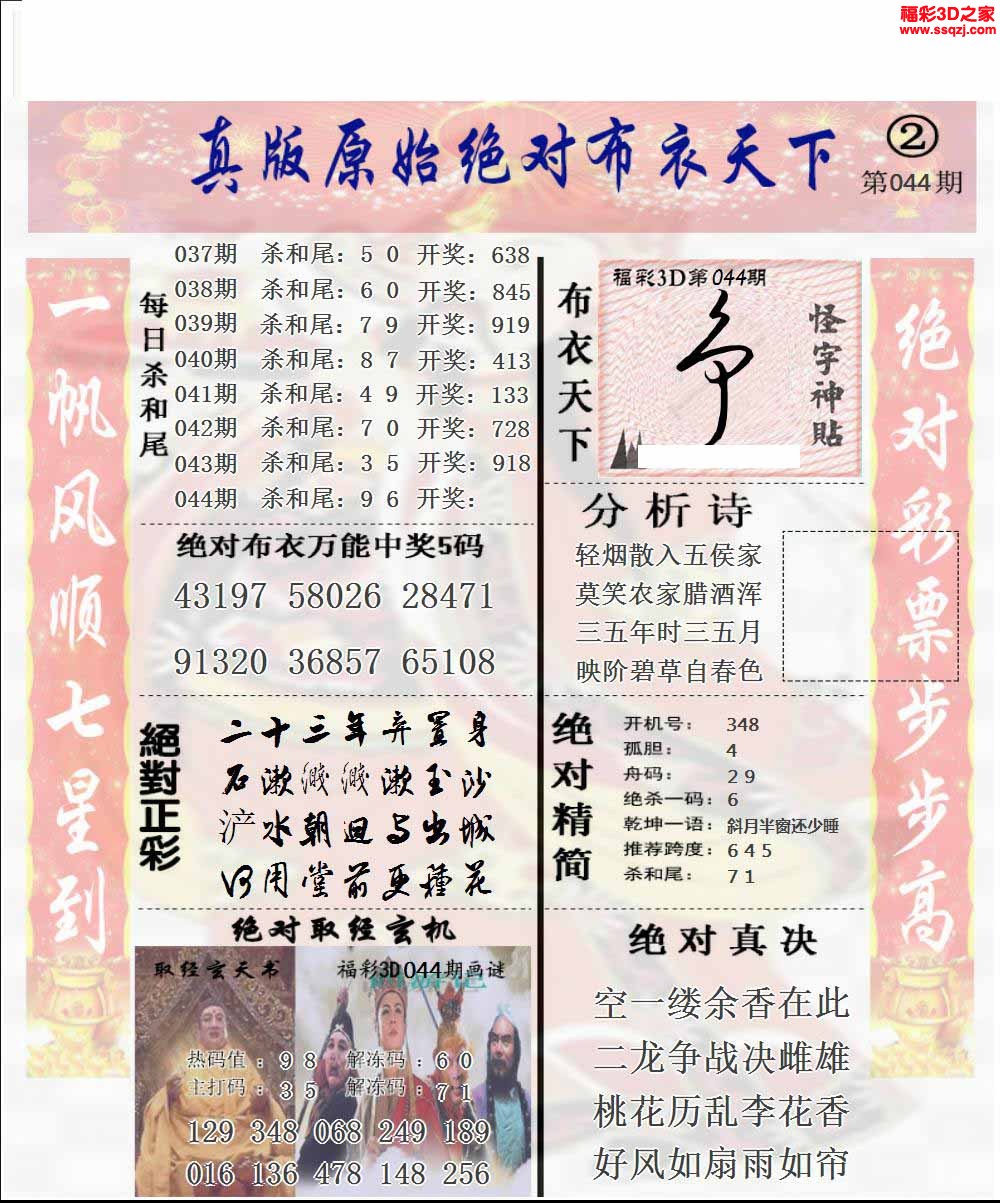 福彩3D之家
www.ssqzj.com
真版原始绝对布衣天下
②
第044期
一帆风顺七星到
每日杀和尾
037期 杀和尾：5 0 开奖：638
038期 杀和尾：6 0 开奖：845
039期 杀和尾：7 9 开奖：919
040期 杀和尾：8 7 开奖：413
041期 杀和尾：4 9 开奖：133
042期 杀和尾：7 0 开奖：728
043期 杀和尾：3 5 开奖：918
044期 杀和尾：9 6 开奖：
绝对布衣万能中奖5码
43197 58026 28471
91320 36857 65108
絕對正彩
二十三年弃置身
石漱溅溅漱玉沙
浐水朝迴与出城
何用堂前更種花
绝对取经玄机
取经玄天书
福彩3D044期画谜
热码值：9 8 解冻码：6 0
主打码：3 5 解冻码：7 1
129 348 068 249 189
016 136 478 148 256
布衣天下
福彩3D第044期
怪字神貼
分析诗
轻烟散入五侯家
莫笑农家腊酒浑
三五年时三五月
映阶碧草自春色
绝对精简
开机号： 348
孤胆： 4
舟码： 2 9
绝杀一码：6
乾坤一语：斜月半窗还少睡
推荐跨度：6 4 5
杀和尾： 7 1
绝对真决
空一缕余香在此
二龙争战决雌雄
桃花历乱李花香
好风如扇雨如帘
绝对彩票步步高